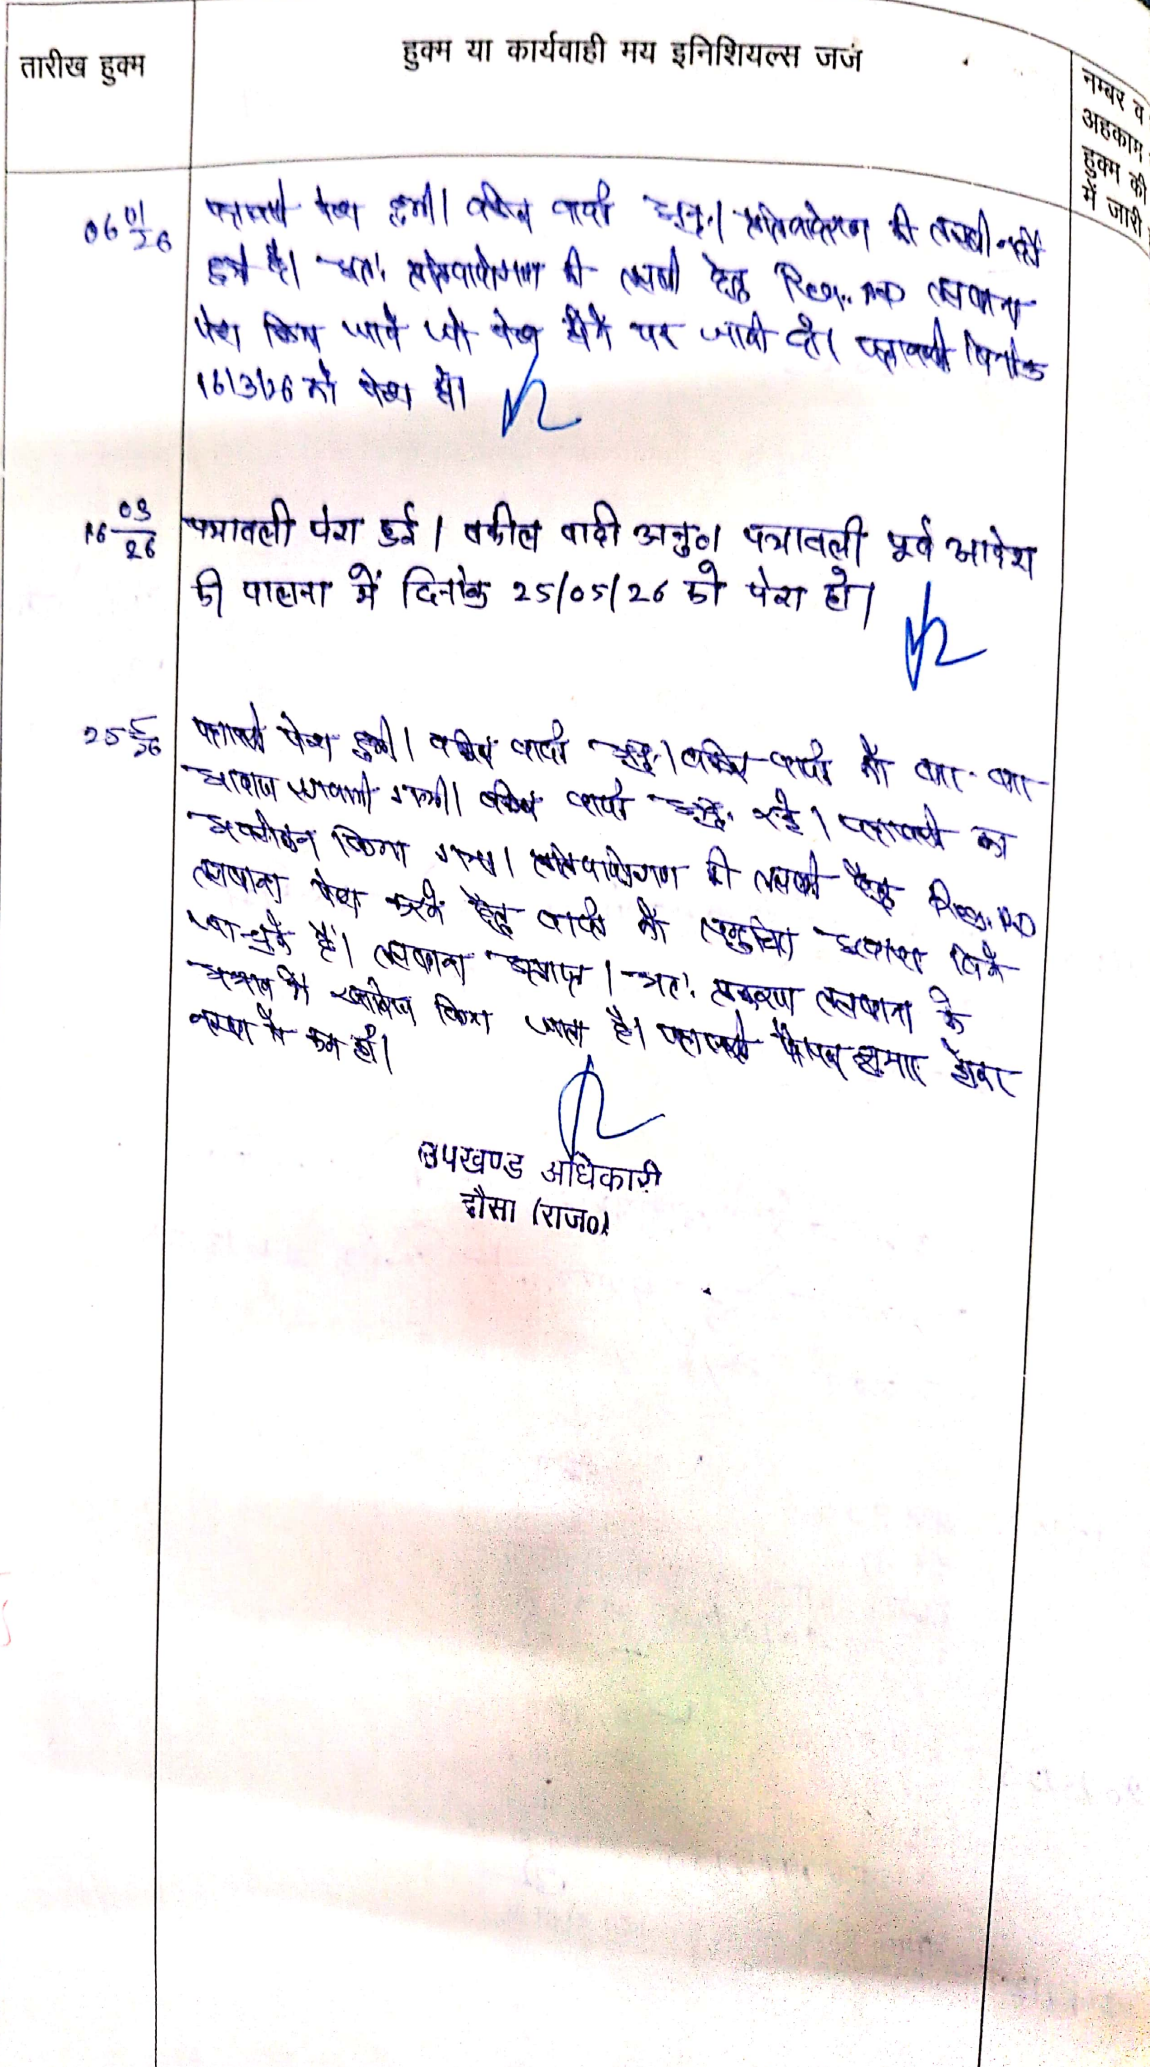 तारीख हुक्म
हुक्म या कार्यवाही मय इनिशियल्स जज
नम्बर व
अहकाम
हुक्म की
में जारी
06 01/26
पत्रावली पेश हुयी। वकील वादी अनु.। प्रतिवादीगण की तलबी नहीं
हुयी है। अतः प्रतिवादीगण की तलबी हेतु Reg. AD तलबाना
पेश किया जावे जो पेश होने पर जारी हो। पत्रावली दिनांक
16/3/26 को पेश हो।
16 03/26
पत्रावली पेश हुई। वकील वादी अनु०। पत्रावली पूर्व आदेश
की पालना में दिनांक 25/05/26 को पेश हो।
25 5/26
पत्रावली पेश हुयी। वकील वादी अनु.। वकील वादी को बार-बार
आवाज लगवायी गयी। वकील वादी अनु. रहे। पत्रावली का
अवलोकन किया गया। प्रतिवादीगण की तलबी हेतु Reg. AD
तलबाना पेश करने हेतु वादी को समुचित अवसर दिये
जा चुके हैं। तलबाना अप्राप्त। अतः प्रकरण तलबाना के
अभाव में खारिज किया जाता है। पत्रावली फैसल शुमार होकर
नम्बर से कम हो।
उपखण्ड अधिकारी
दौसा (राज०)